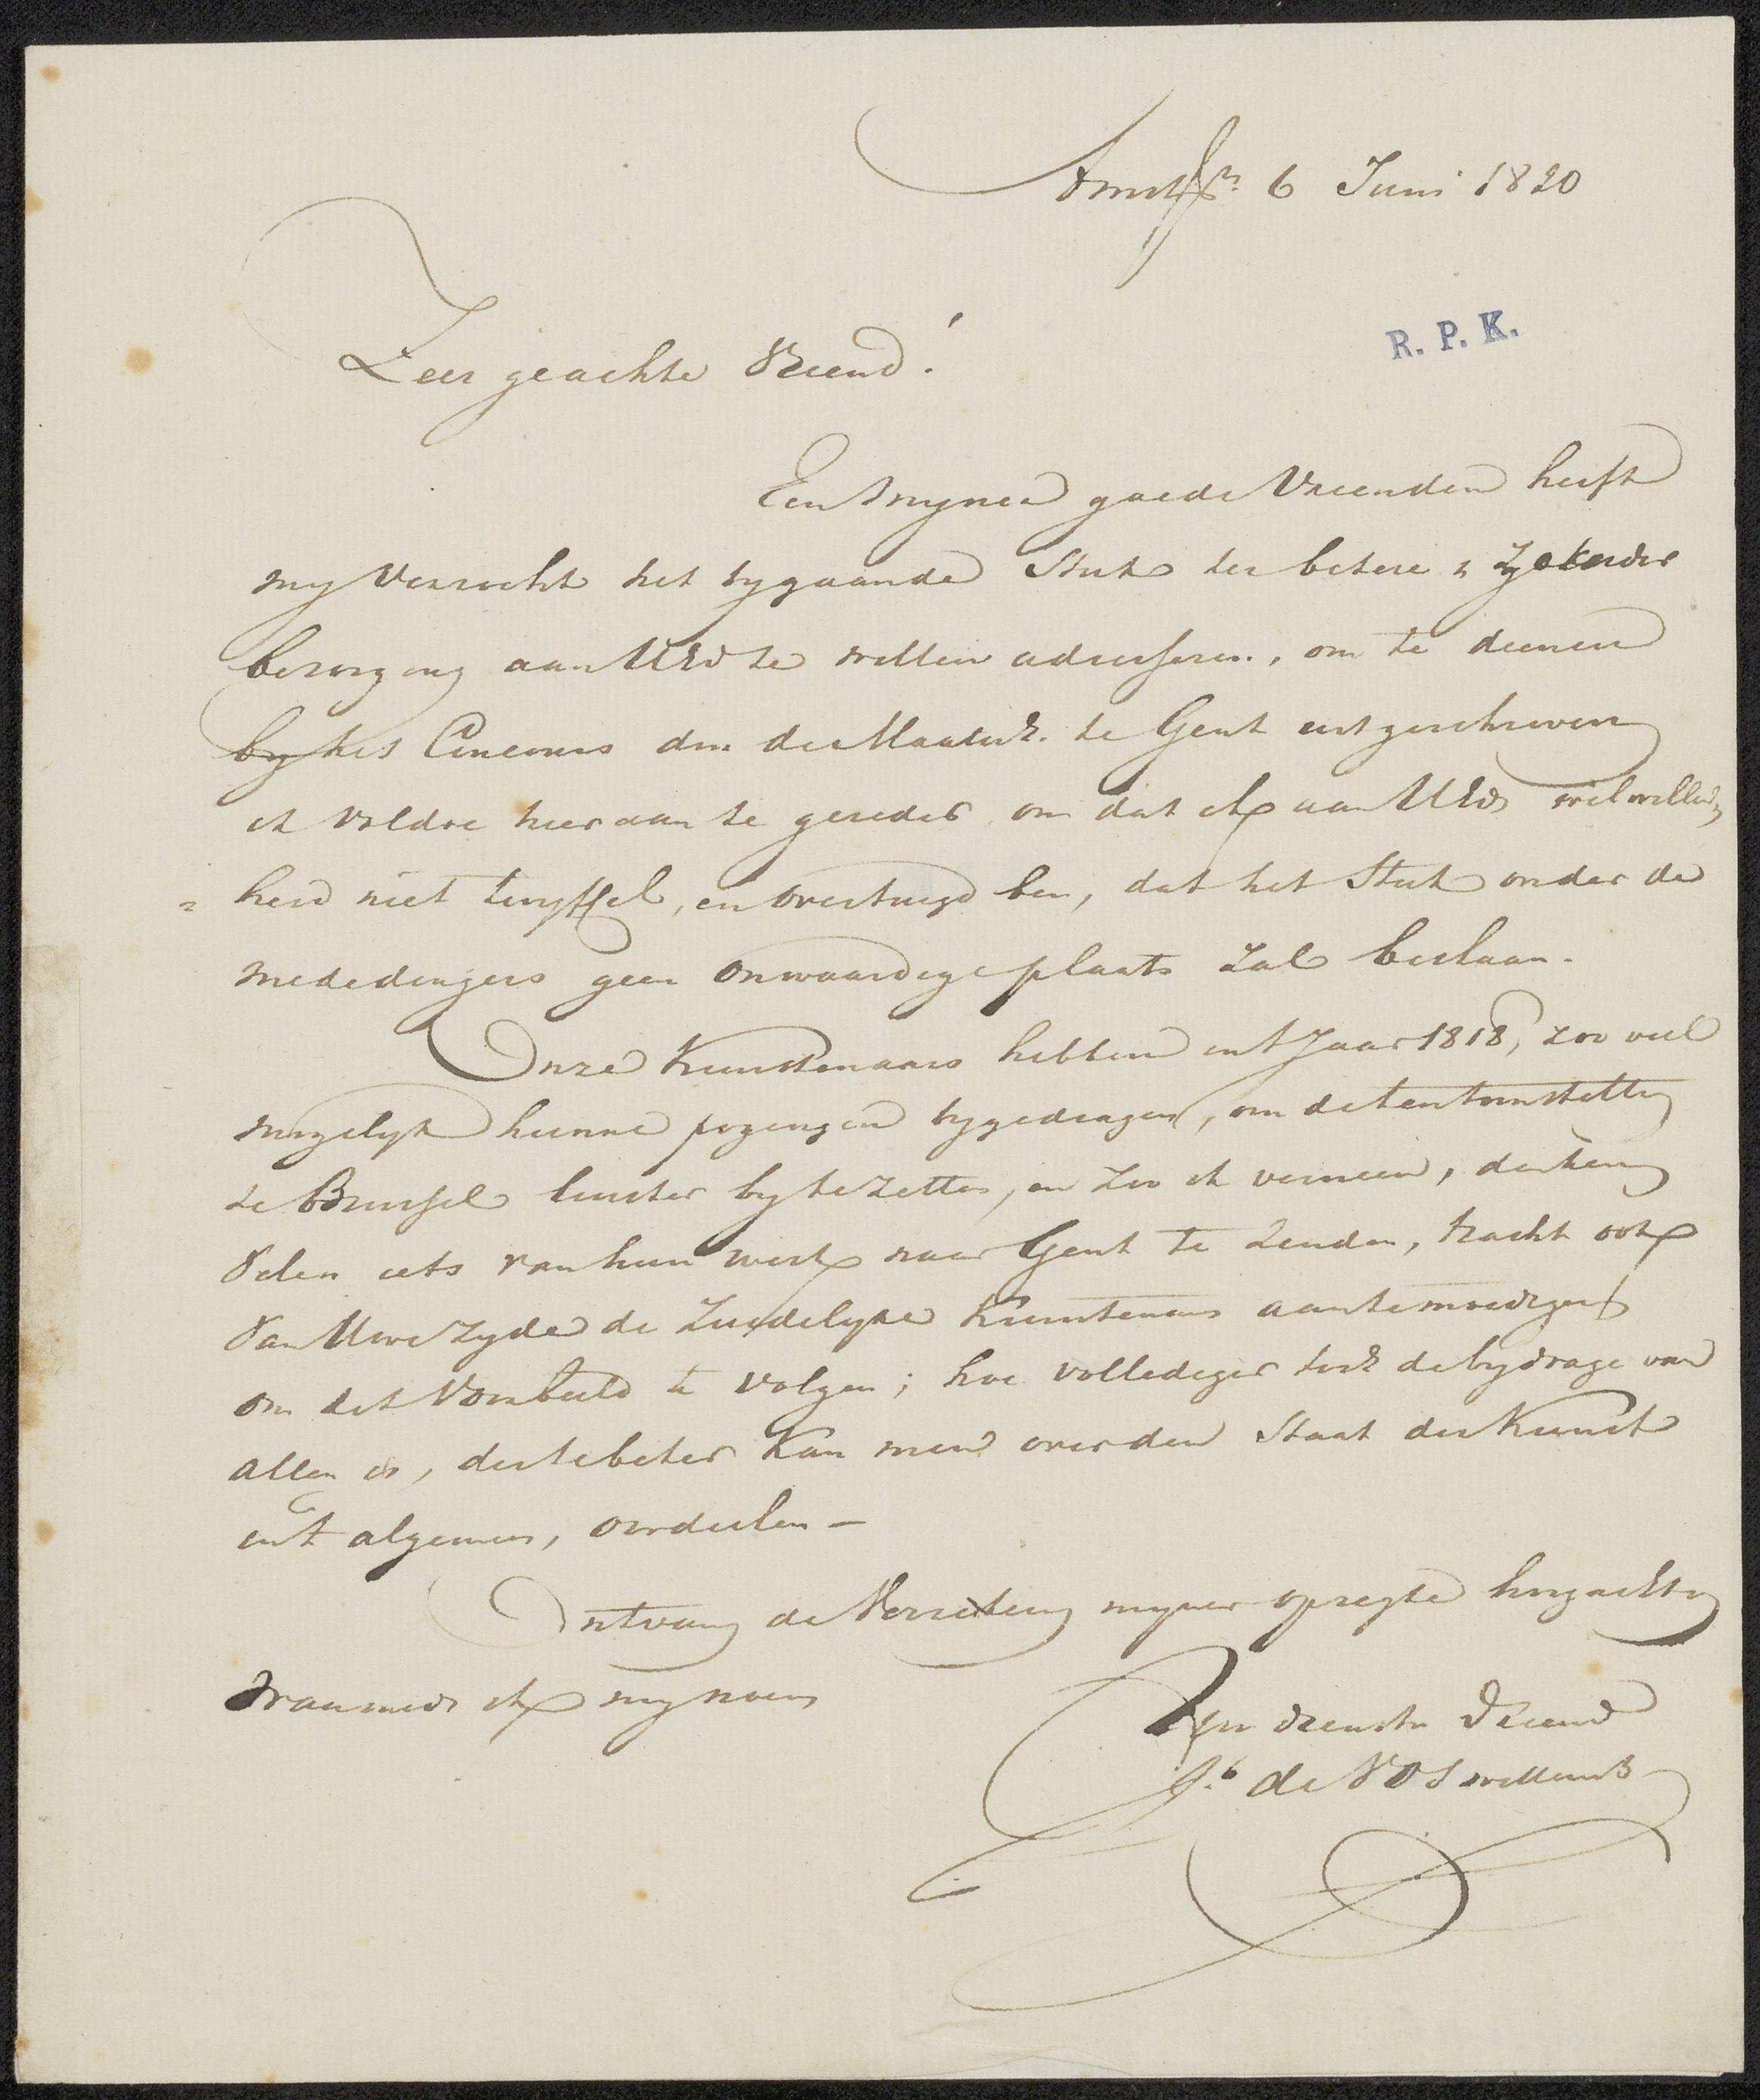 Amstm. 6 Juni 1820
R. P. K.
Zeer geachte Vriend!
Een myner goede Vrienden heeft
my verzocht het bygaande Stuk ter betere & zekerder
bezorging aan UEd te willen adresseren, om te dienen
by het Concours door de Maatsch. te Gent uitgeschreven
ik voldoe hier aan te gereder om dat ik aan UEds welwillend
= heid niet twyffel, en overtuigd ben, dat het Stuk onder de
mededingers geen onwaardige plaats zal beslaan.
Onze Kunstenaars hebben in 't Jaar 1818, zoo veel
mogelyk hunne pogingen bygedragen, om de tentoonstelling
te Brussel luister by te zetten, en zoo ik verneem, denken
Velen iets van hun werk naar Gent te zenden, tracht ook
Van Uwe zyde de Zuidelyke Kunstenaars aantemoedigen
om dit Voorbeeld te volgen; hoe vollediger toch de bydrage van
allen is, des te beter kan men over den Staat der Kunst
in 't algemeen, oordeelen —
Ontvang de Verzekering myner opregte hoogachting
waarmede ik my noem
Uw dienstw Vriend
Jb de Vos Willemsz